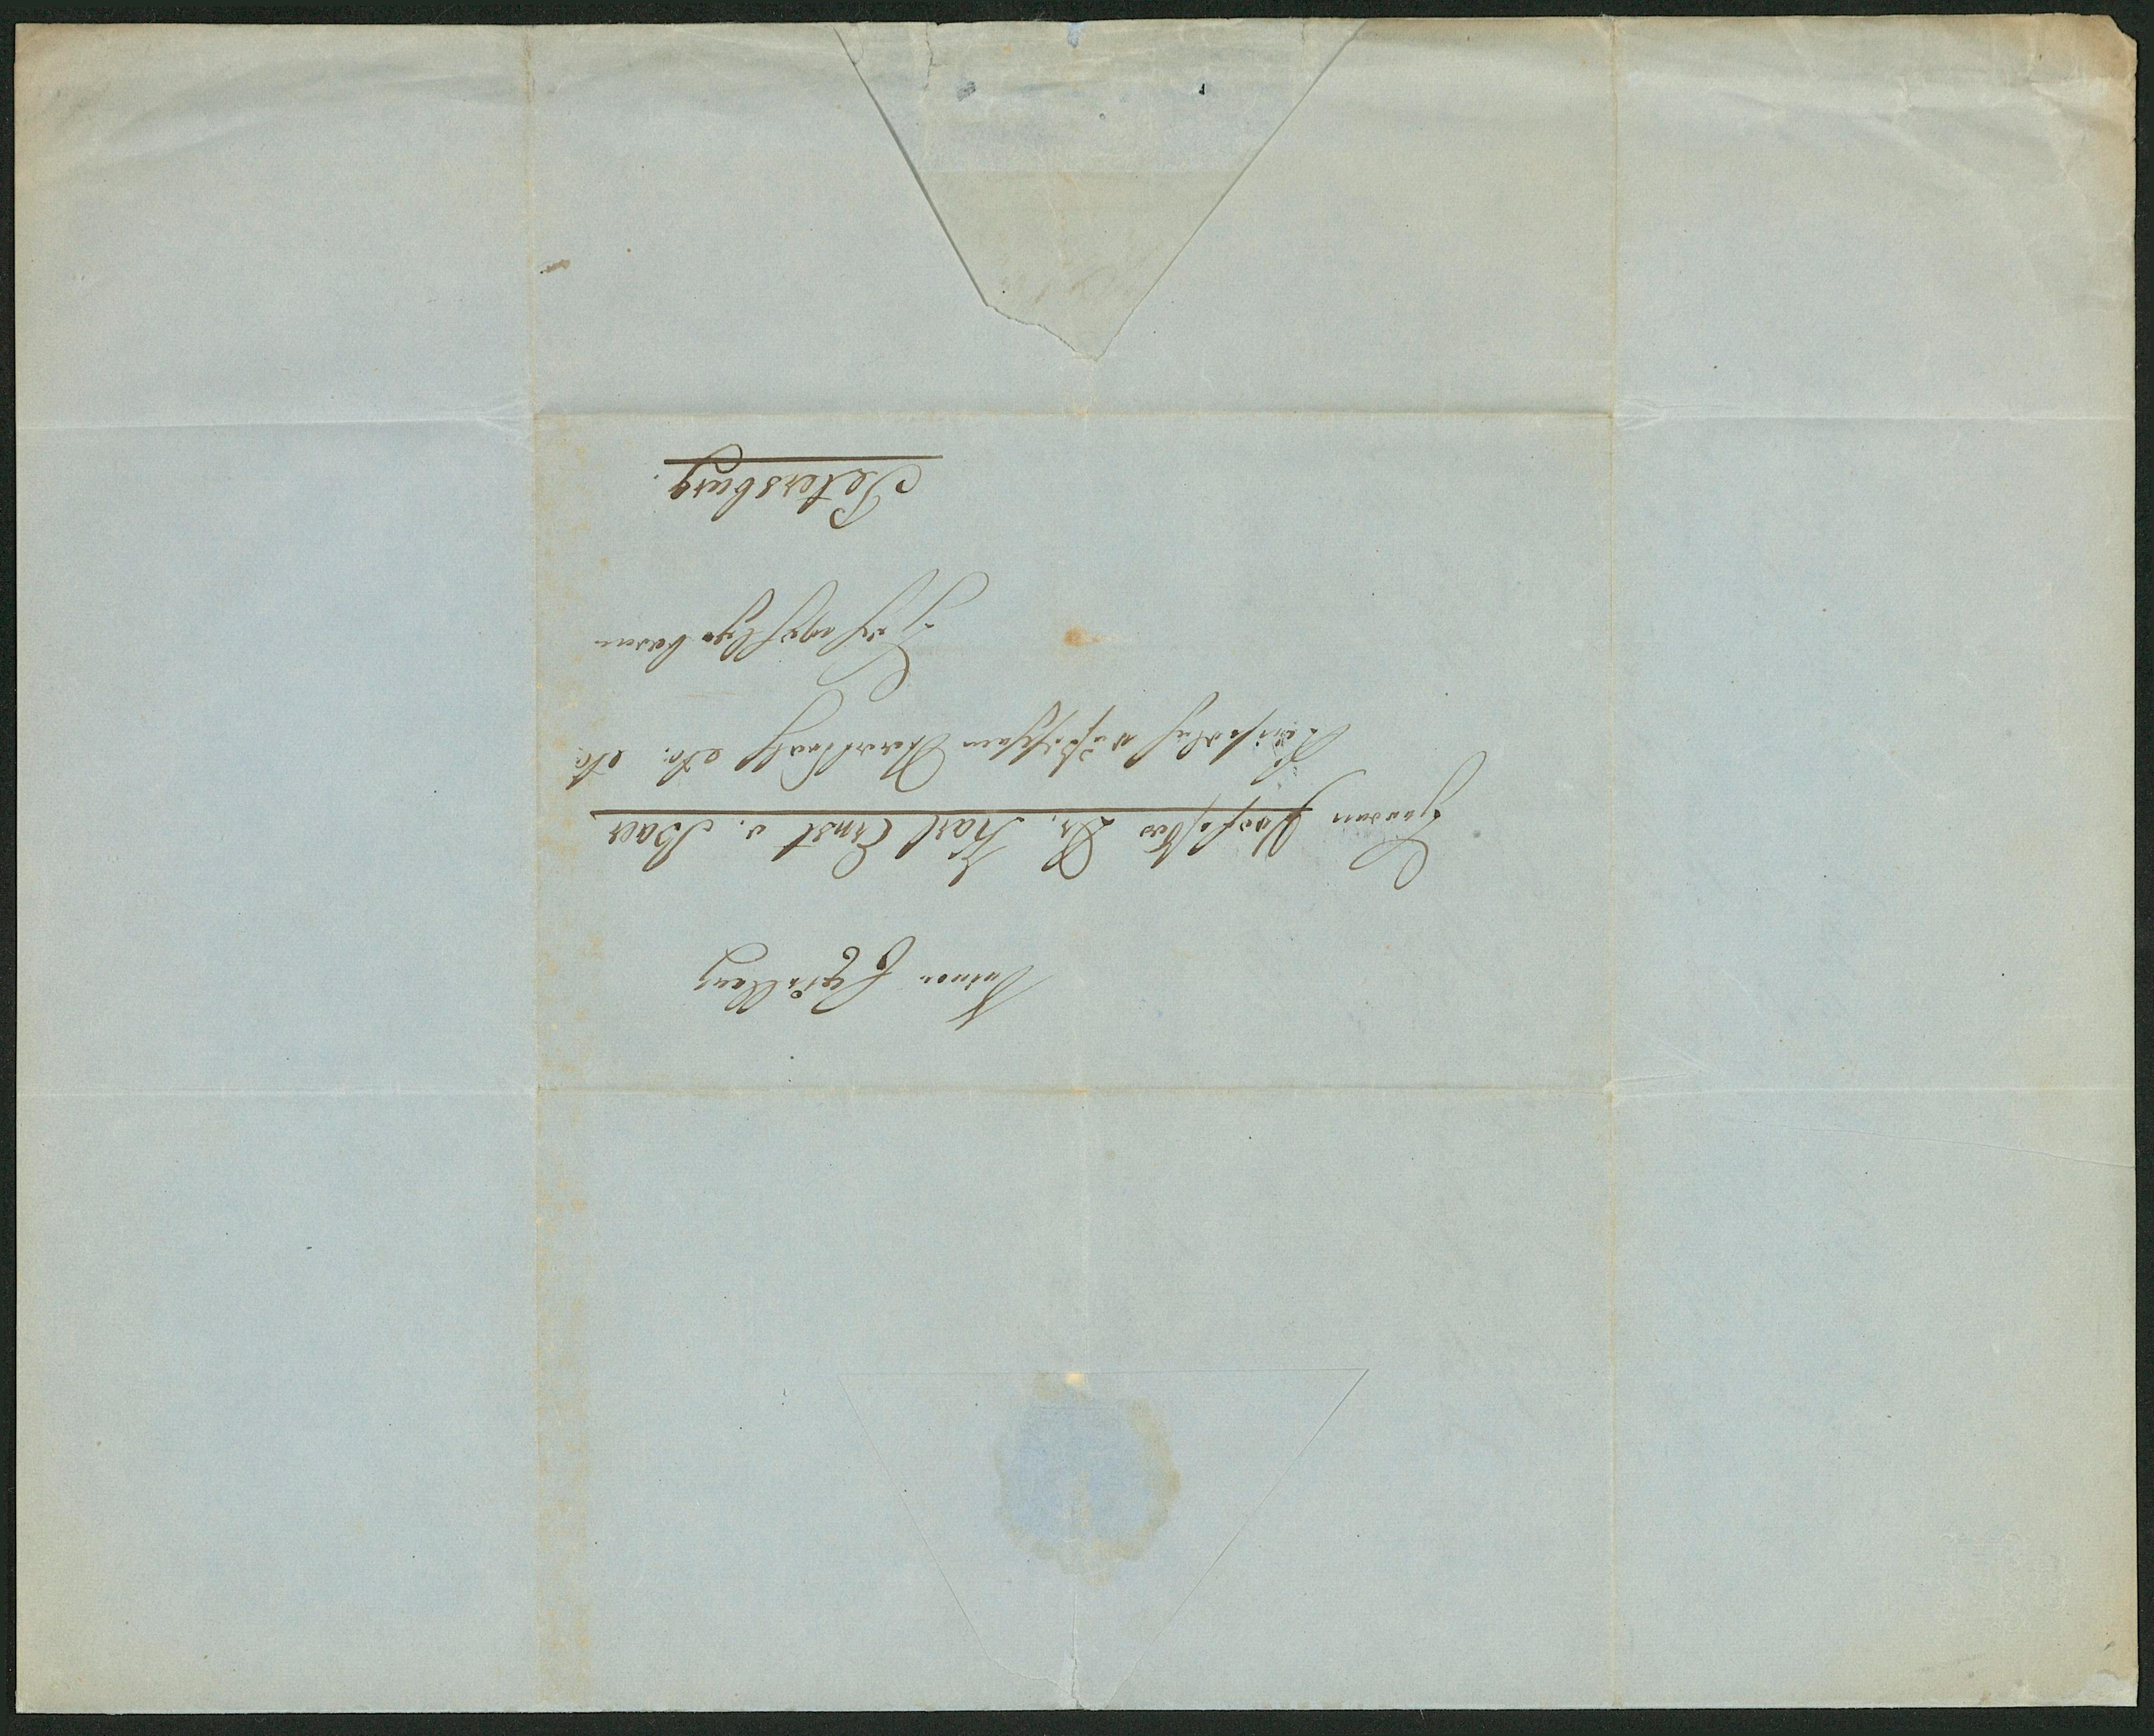 Seiner Excellenz
Herrn Professor Dr. Karl Ernst v. Baer
Kaiserlich russischem Staatsrath etc. etc.
Hochwohlgeboren
Petersburg.